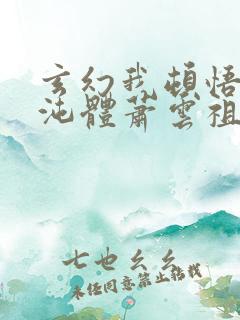 玄幻我頓悟
沌體蕭雲祖
七也幺幺
未经同意禁止搭载